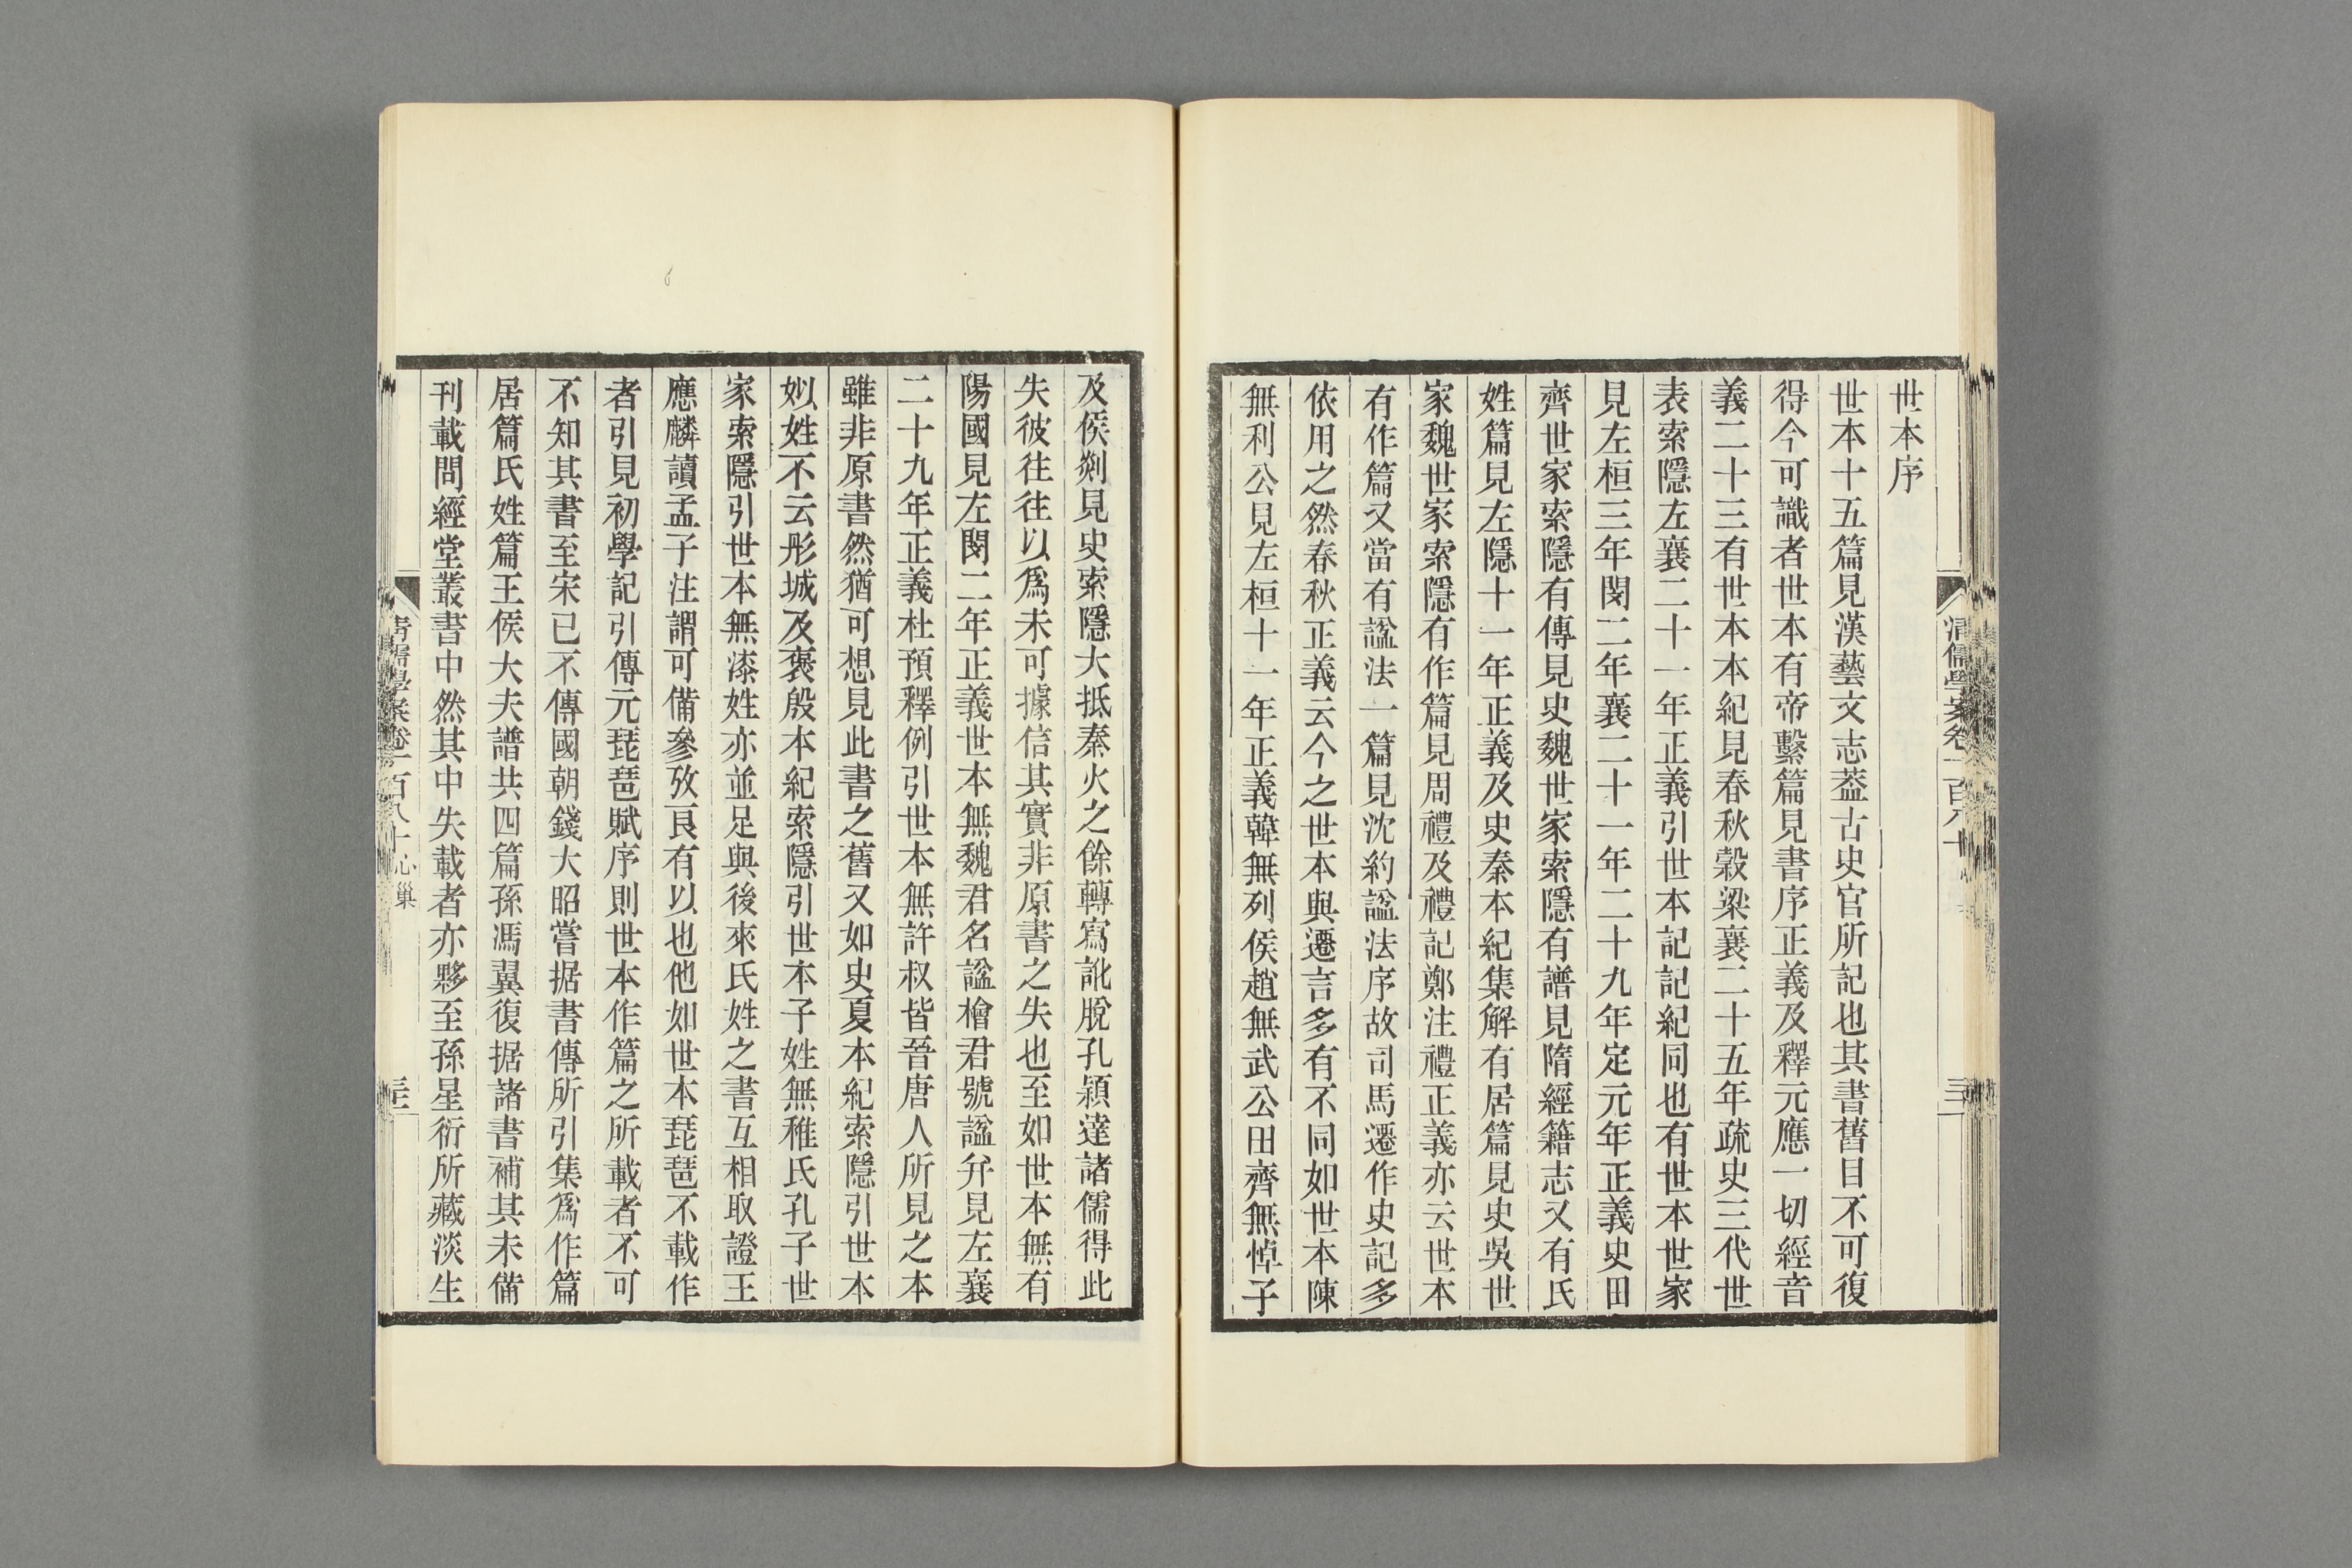 世本序
世本十五篇見漢藝文志葢古史官所記也其書舊目不可復
得今可識者世本有帝繫篇見書序正義及釋元應一切經音
義二十三有世本本紀見春秋穀梁襄二十五年疏史三代世
表索隱左襄二十一年正義引世本記記紀同也有世本世家
見左桓三年閔二年襄二十一年二十九年定元年正義史田
齊世家索隱有傳見史魏世家索隱有譜見隋經籍志又有氏
姓篇見左隱十一年正義及史秦本紀集解有居篇見史吳世
家魏世家索隱有作篇見周禮及禮記鄭注禮正義亦云世本
有作篇又當有諡法一篇見沈約諡法序故司馬遷作史記多
依用之然春秋正義云今之世本與遷言多有不同如世本陳
無利公見左桓十一年正義韓無列侯趙無武公田齊無悼子
及侯剡見史索隱大抵秦火之餘轉寫訛脫孔穎達諸儒得此
失彼往往以爲未可據信其實非原書之失也至如世本無有
陽國見左閔二年正義世本無魏君名諡檜君號諡弁見左襄
二十九年正義杜預釋例引世本無許叔皆晉唐人所見之本
雖非原書然猶可想見此書之舊又如史夏本紀索隱引世本
姒姓不云彤城及褒殷本紀索隱引世本子姓無稚氏孔子世
家索隱引世本無漆姓亦並足與後來氏姓之書互相取證王
應麟讀孟子注謂可備參攷良有以也他如世本琵琶不載作
者引見初學記引傳元琵琶賦序則世本作篇之所載者不可
不知其書至宋已不傳國朝錢大昭嘗据書傳所引集爲作篇
居篇氏姓篇王侯大夫譜共四篇孫馮翼復据諸書補其未備
刊載問經堂叢書中然其中失載者亦夥至孫星衍所藏淡生
清儒學案卷一百八十 心巢